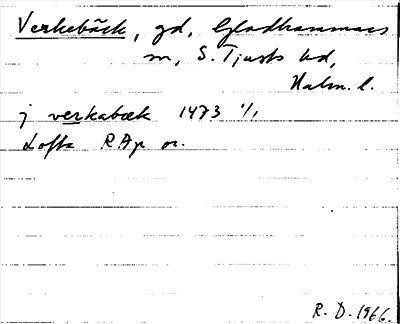 Verkebäck, gd, Gladhammars
sn, S. Tjusts hd,
Kalm. l.
j verkabæk 1473 1/1
Lofta RAp or.
R. D. 1966.